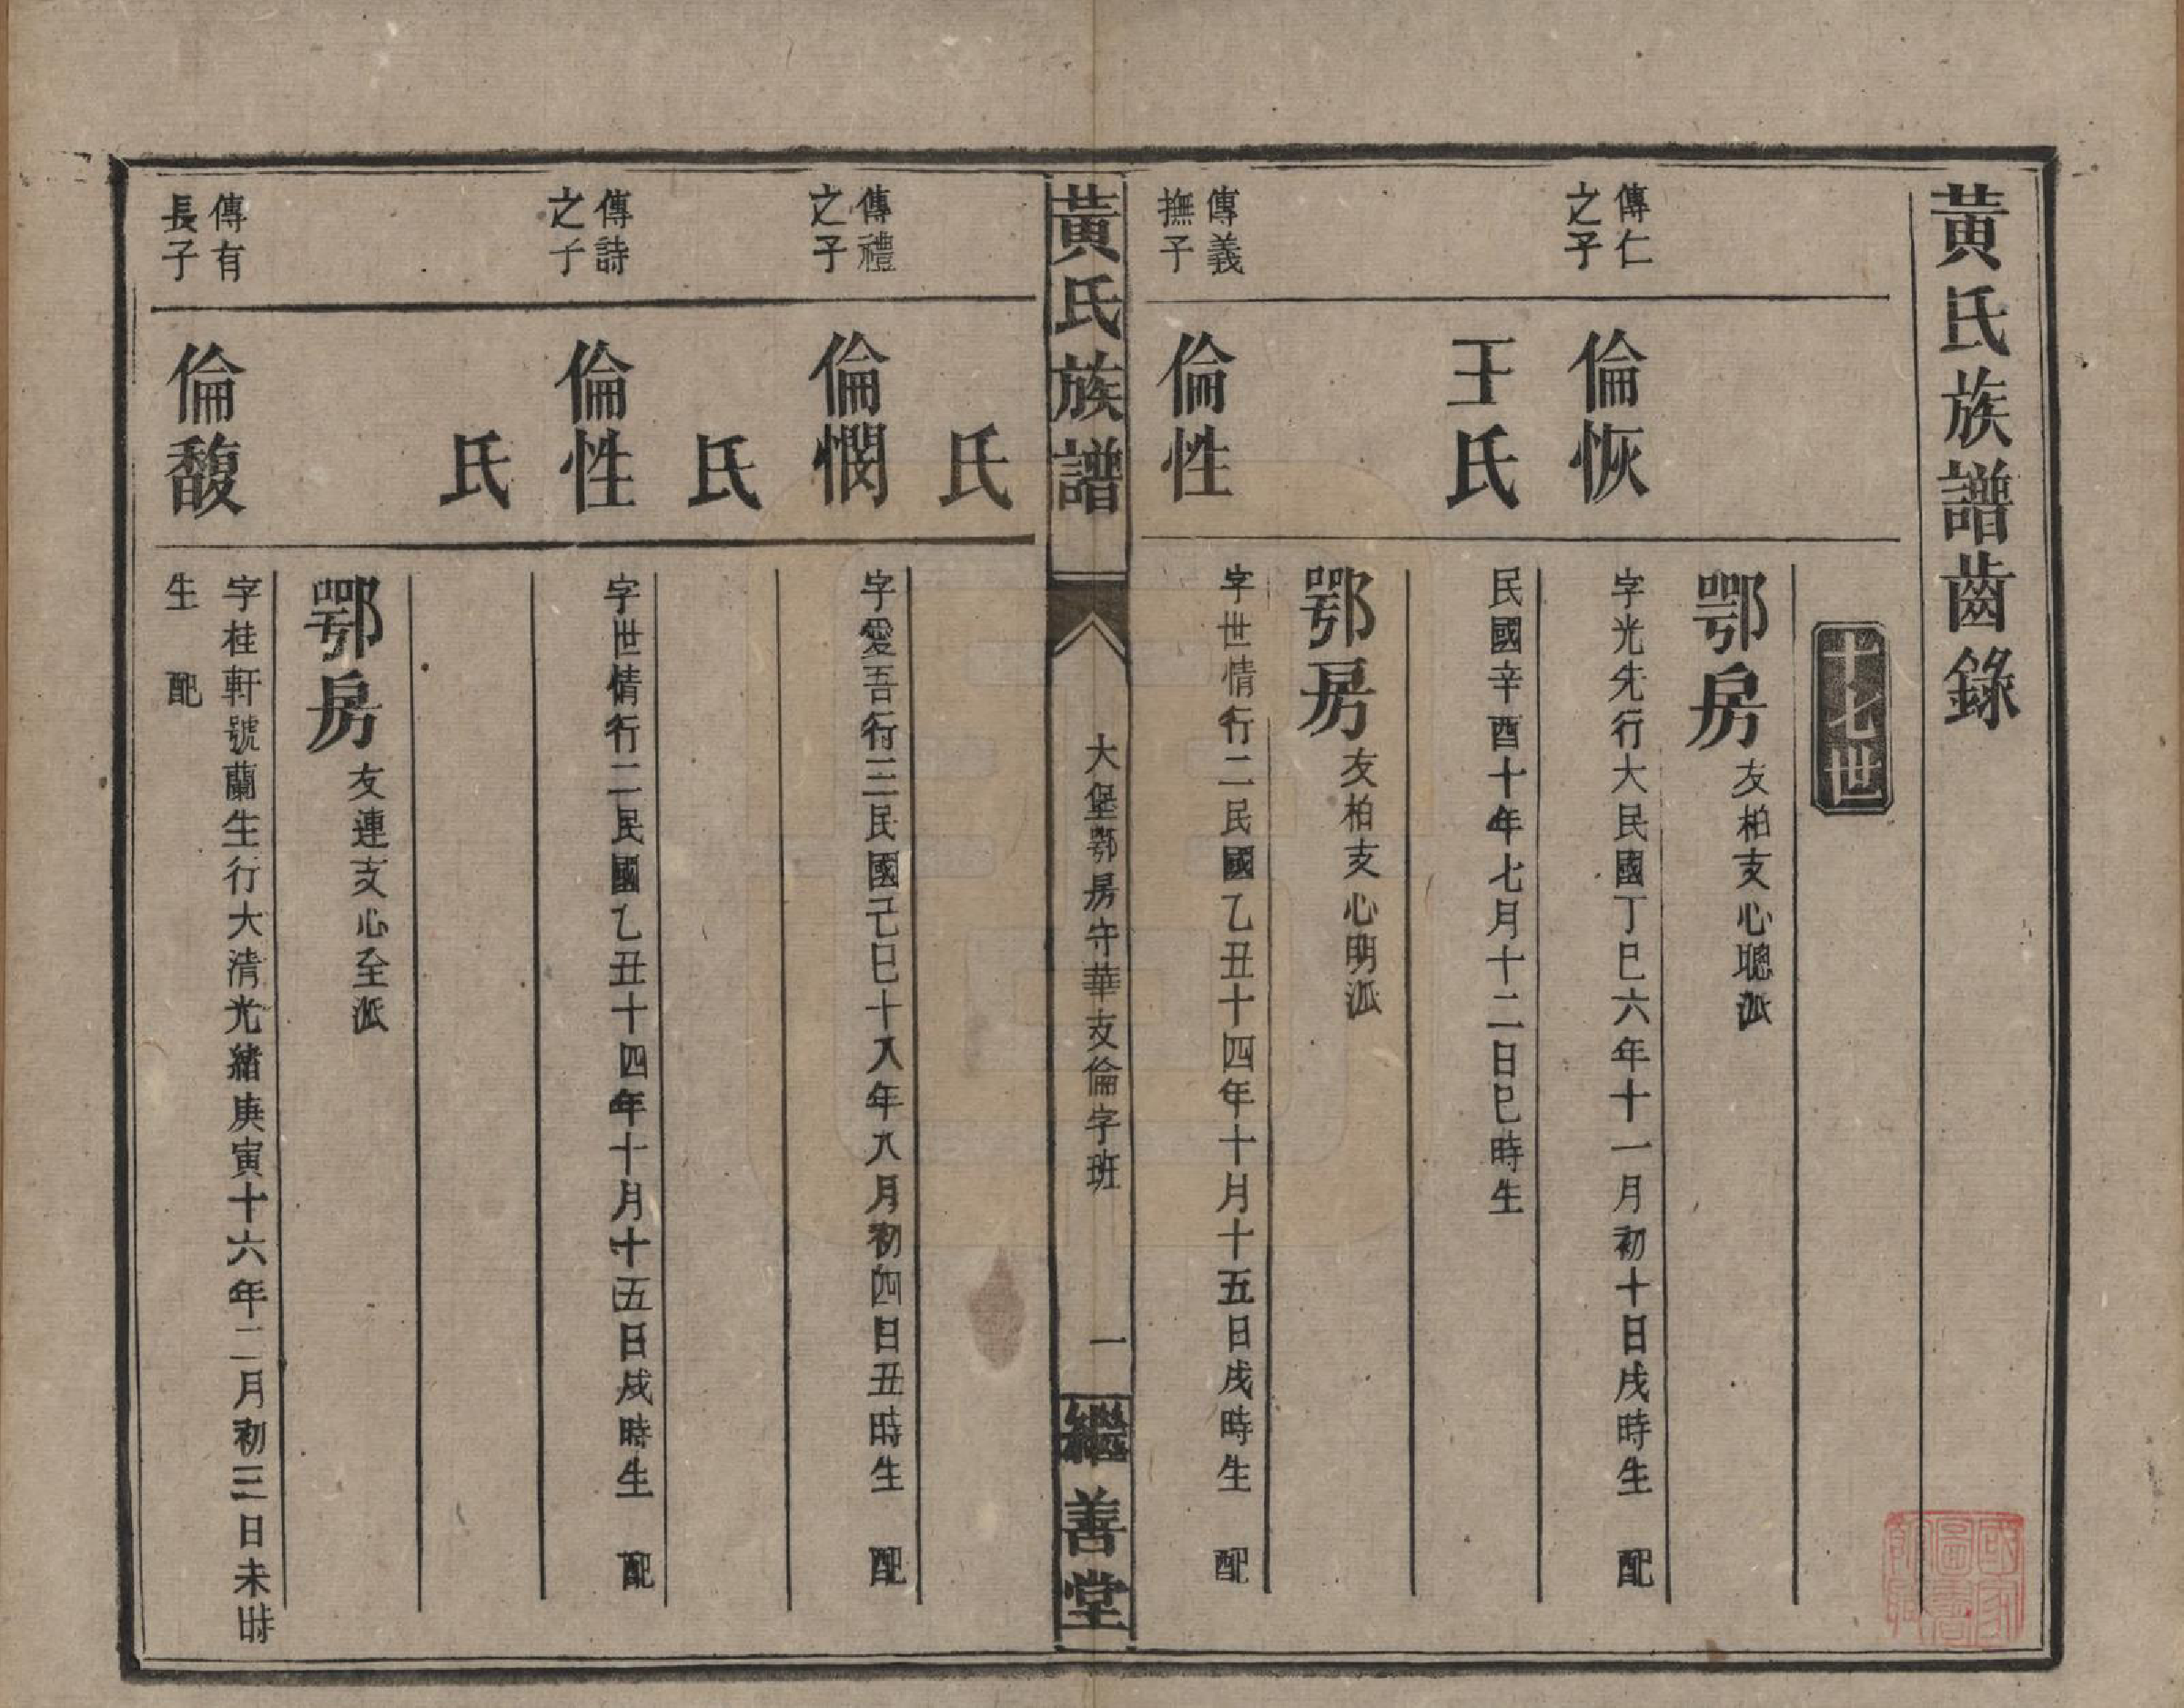 黃氏族譜齒錄
十七世
鄂房 友柏支心聰派
傳仁之子
倫恢
字光先行大民國丁巳六年十一月初十日戌時生 配
王氏
民國辛酉十年七月十二日巳時生
鄂房 友柏支心明派
傳義撫子
倫性
字世情行二民國乙丑十四年十月十五日戌時生 配
黃氏族譜
大堡鄂房守華支倫字班
一
繼善堂
氏
傳禮之子
倫憫
字愛吾行三民國己巳十八年八月初四日丑時生 配
氏
傳詩之子
倫性
字世情行二民國乙丑十四年十月十五日戌時生 配
氏
鄂房 友連支心至派
傳有長子
倫馥
字桂軒號蘭生行大清光緒庚寅十六年二月初三日未時
生 配